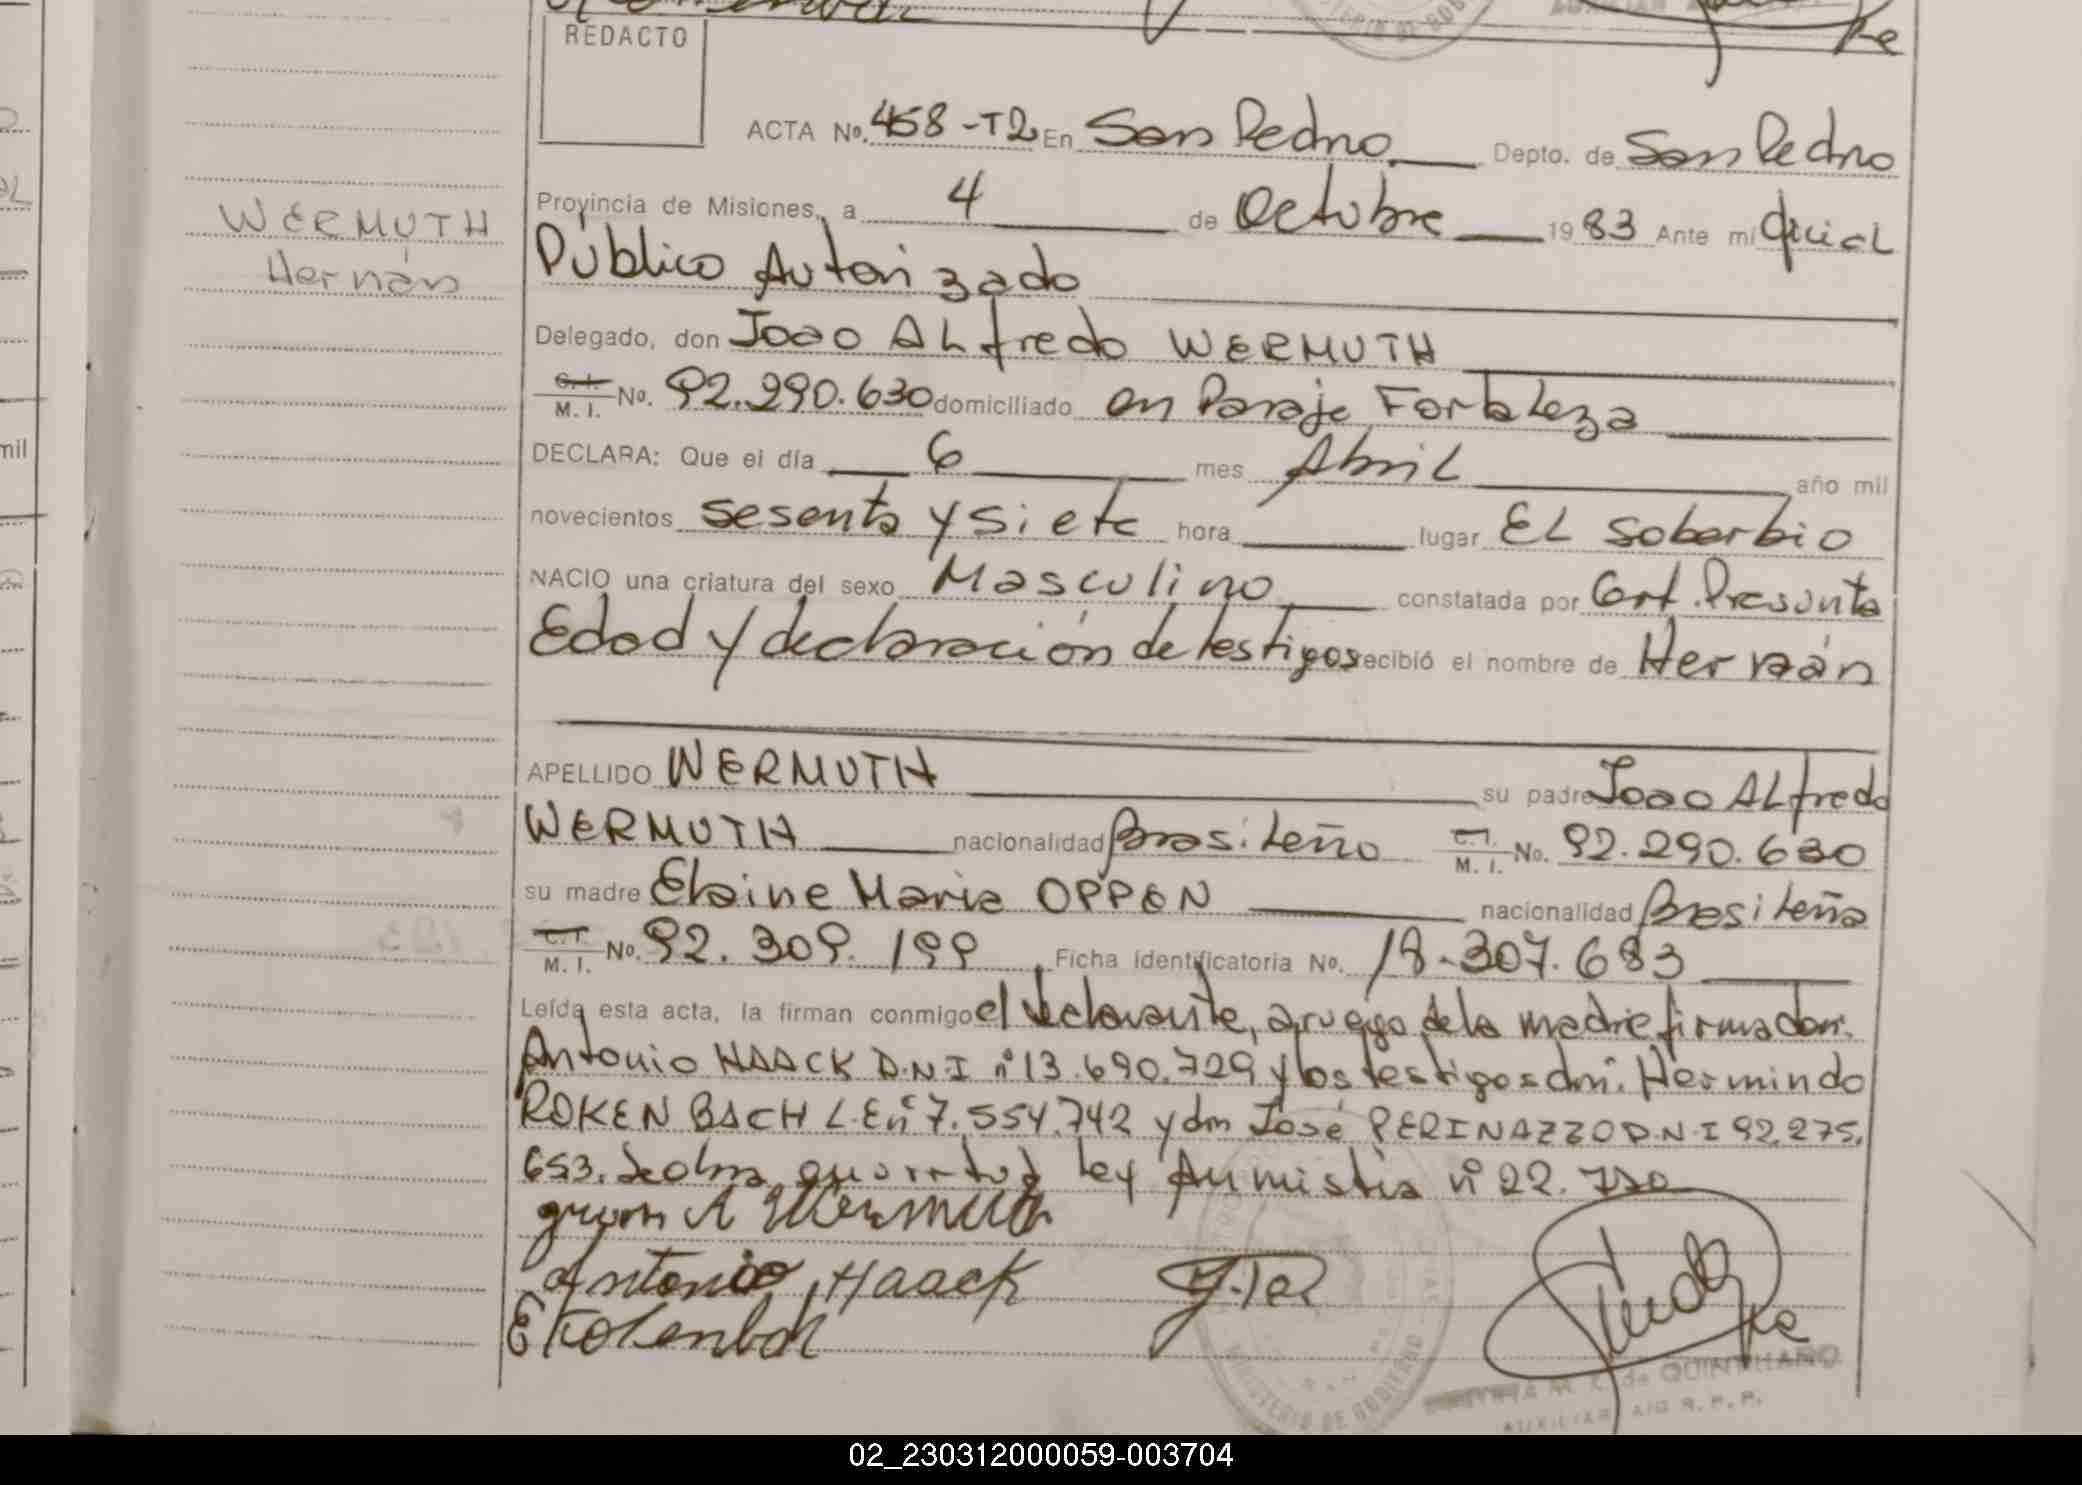 REDACTO
ACTA No. 458-T2 En San Pedro Depto. de San Pedro
Provincia de Misiones, a 4 de Octubre 1983 Ante mi Oficial
Público Autorizado
WERMUTH
Hernán
Delegado, don Joao ALfredo WERMUTH
C. I. M. I. No. 92.290.630 domiciliado en Paraje Fortaleza
DECLARA: Que el día 6 mes Abril año mil
novecientos sesenta y siete hora lugar EL Soberbio
NACIO una criatura del sexo Masculino constatada por Cert. Presunta
Edad y declaración de testigos recibió el nombre de Hernán
APELLIDO WERMUTH su padre Joao ALfredo
WERMUTH nacionalidad Brasileño C. I. M. I. No. 92.290.630
su madre Elaine Maria OPPEN nacionalidad Brasileña
C. I. M. I. No. 92.309.199 Ficha Identificatoria No. 18.307.683
Leída esta acta, la firman conmigo el declarante, a ruego de la madre firma don:
Antonio HAACK D.N.I nº 13.690.729 y los testigos don: Hermindo
ROKENBACH L.E nº 7.554.742 y don José PERINAZZO D.N.I 92.275.
653. Ley Amnistia nº 22.
Wermuth
Antonio Haack
MINISTERIO DE GOBIERNO
de QUINTILIANO
AUXILIAR A/G R.P.P.
02_230312000059-003704